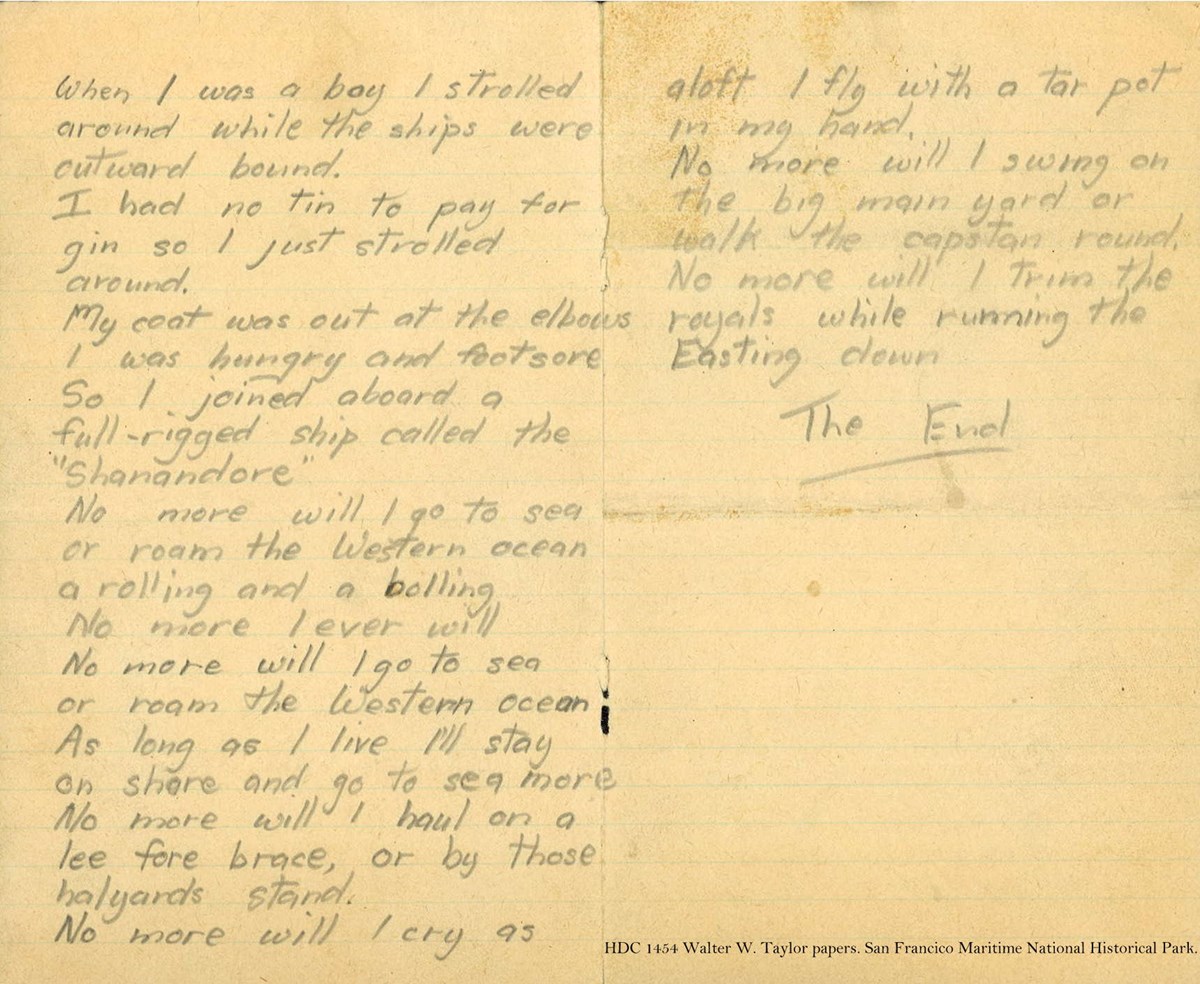 When I was a boy I strolled
around while the ships were
outward bound.
I had no tin to pay for
gin so I just strolled
around.
My coat was out at the elbows
I was hungry and footsore
So I joined aboard a
full-rigged ship called the
"Shanandore"
No more will I go to sea
or roam the Western ocean
a rolling and a bolling
No more I ever will
No more will I go to sea
or roam the Western ocean
As long as I live I'll stay
on share and go to sea more
No more will I haul on a
lee fore brace, or by those
halyards stand.
No more will I cry as
aloft I fly with a tar pot
in my hand.
No more will I swing on
the big main yard or
walk the capstan round.
No more will I trim the
royals while running the
Easting down
The End
HDC 1454 Walter W. Taylor papers. San Francico Maritime National Historical Park.